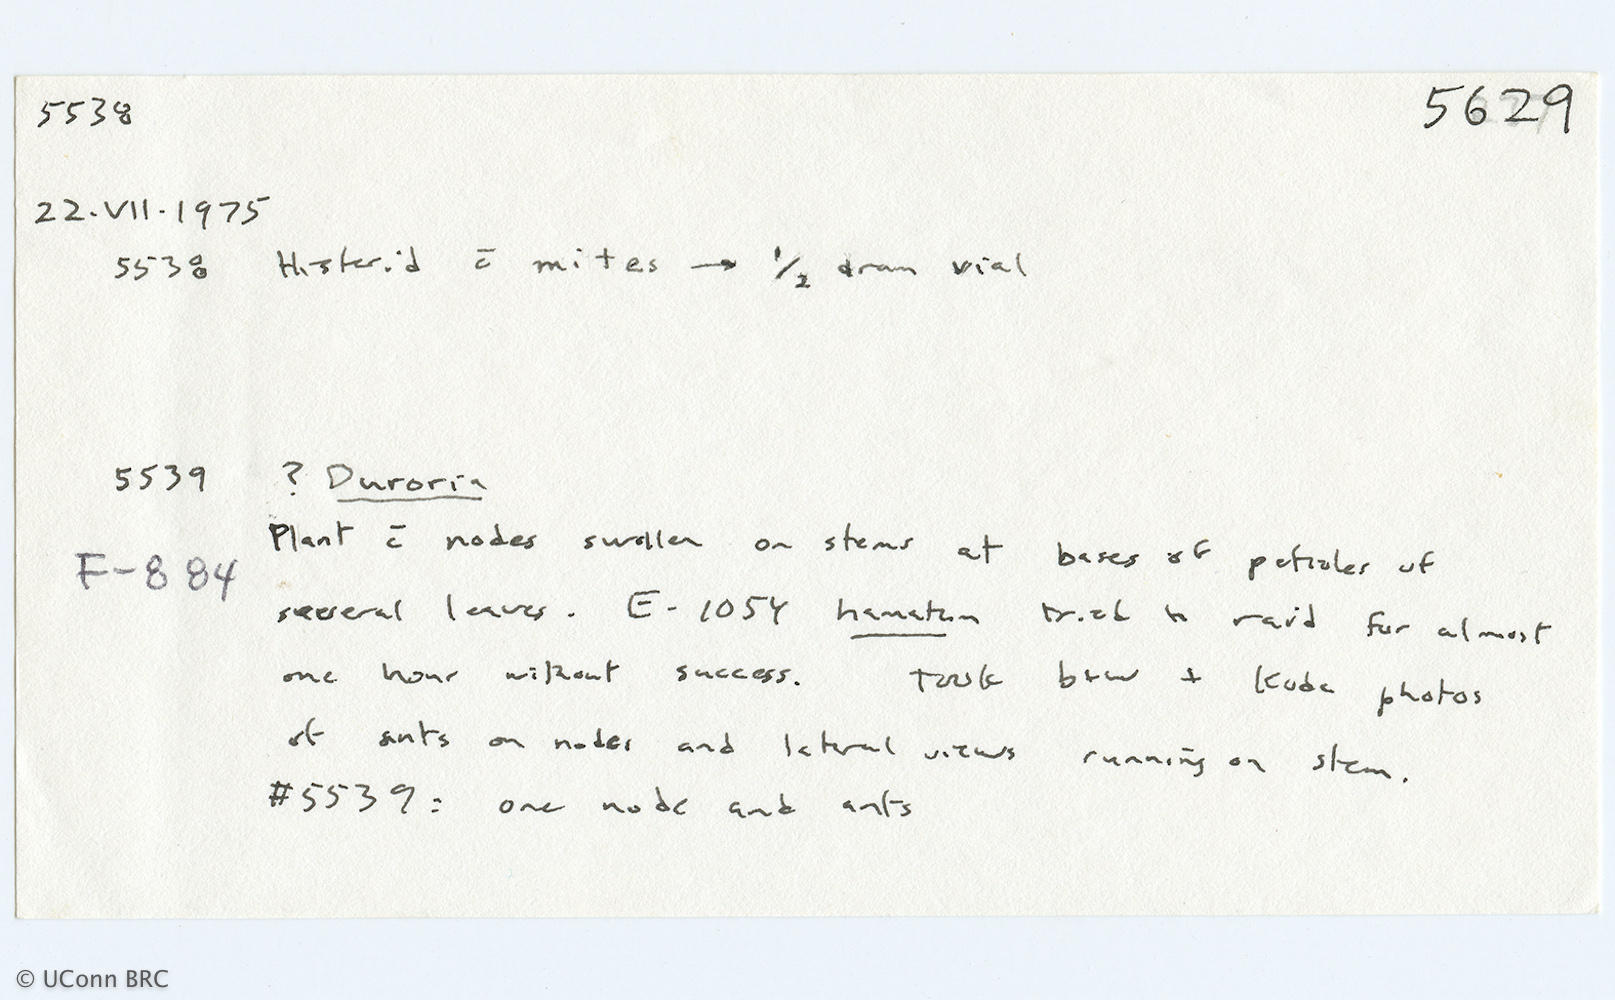 5538 5629
22.VII.1975
5538 Histerid c̄ mites → 1/2 dram vial
5539 ? Duroria
Plant c̄ nodes swollen on stems at bases of petioles of
F-884
several leaves. E-1054 hamatum tried to raid for almost
one hour without success. Took b+w + Koda photos
of ants on nodes and lateral views running on stem.
#5539: one node and ants
© UConn BRC